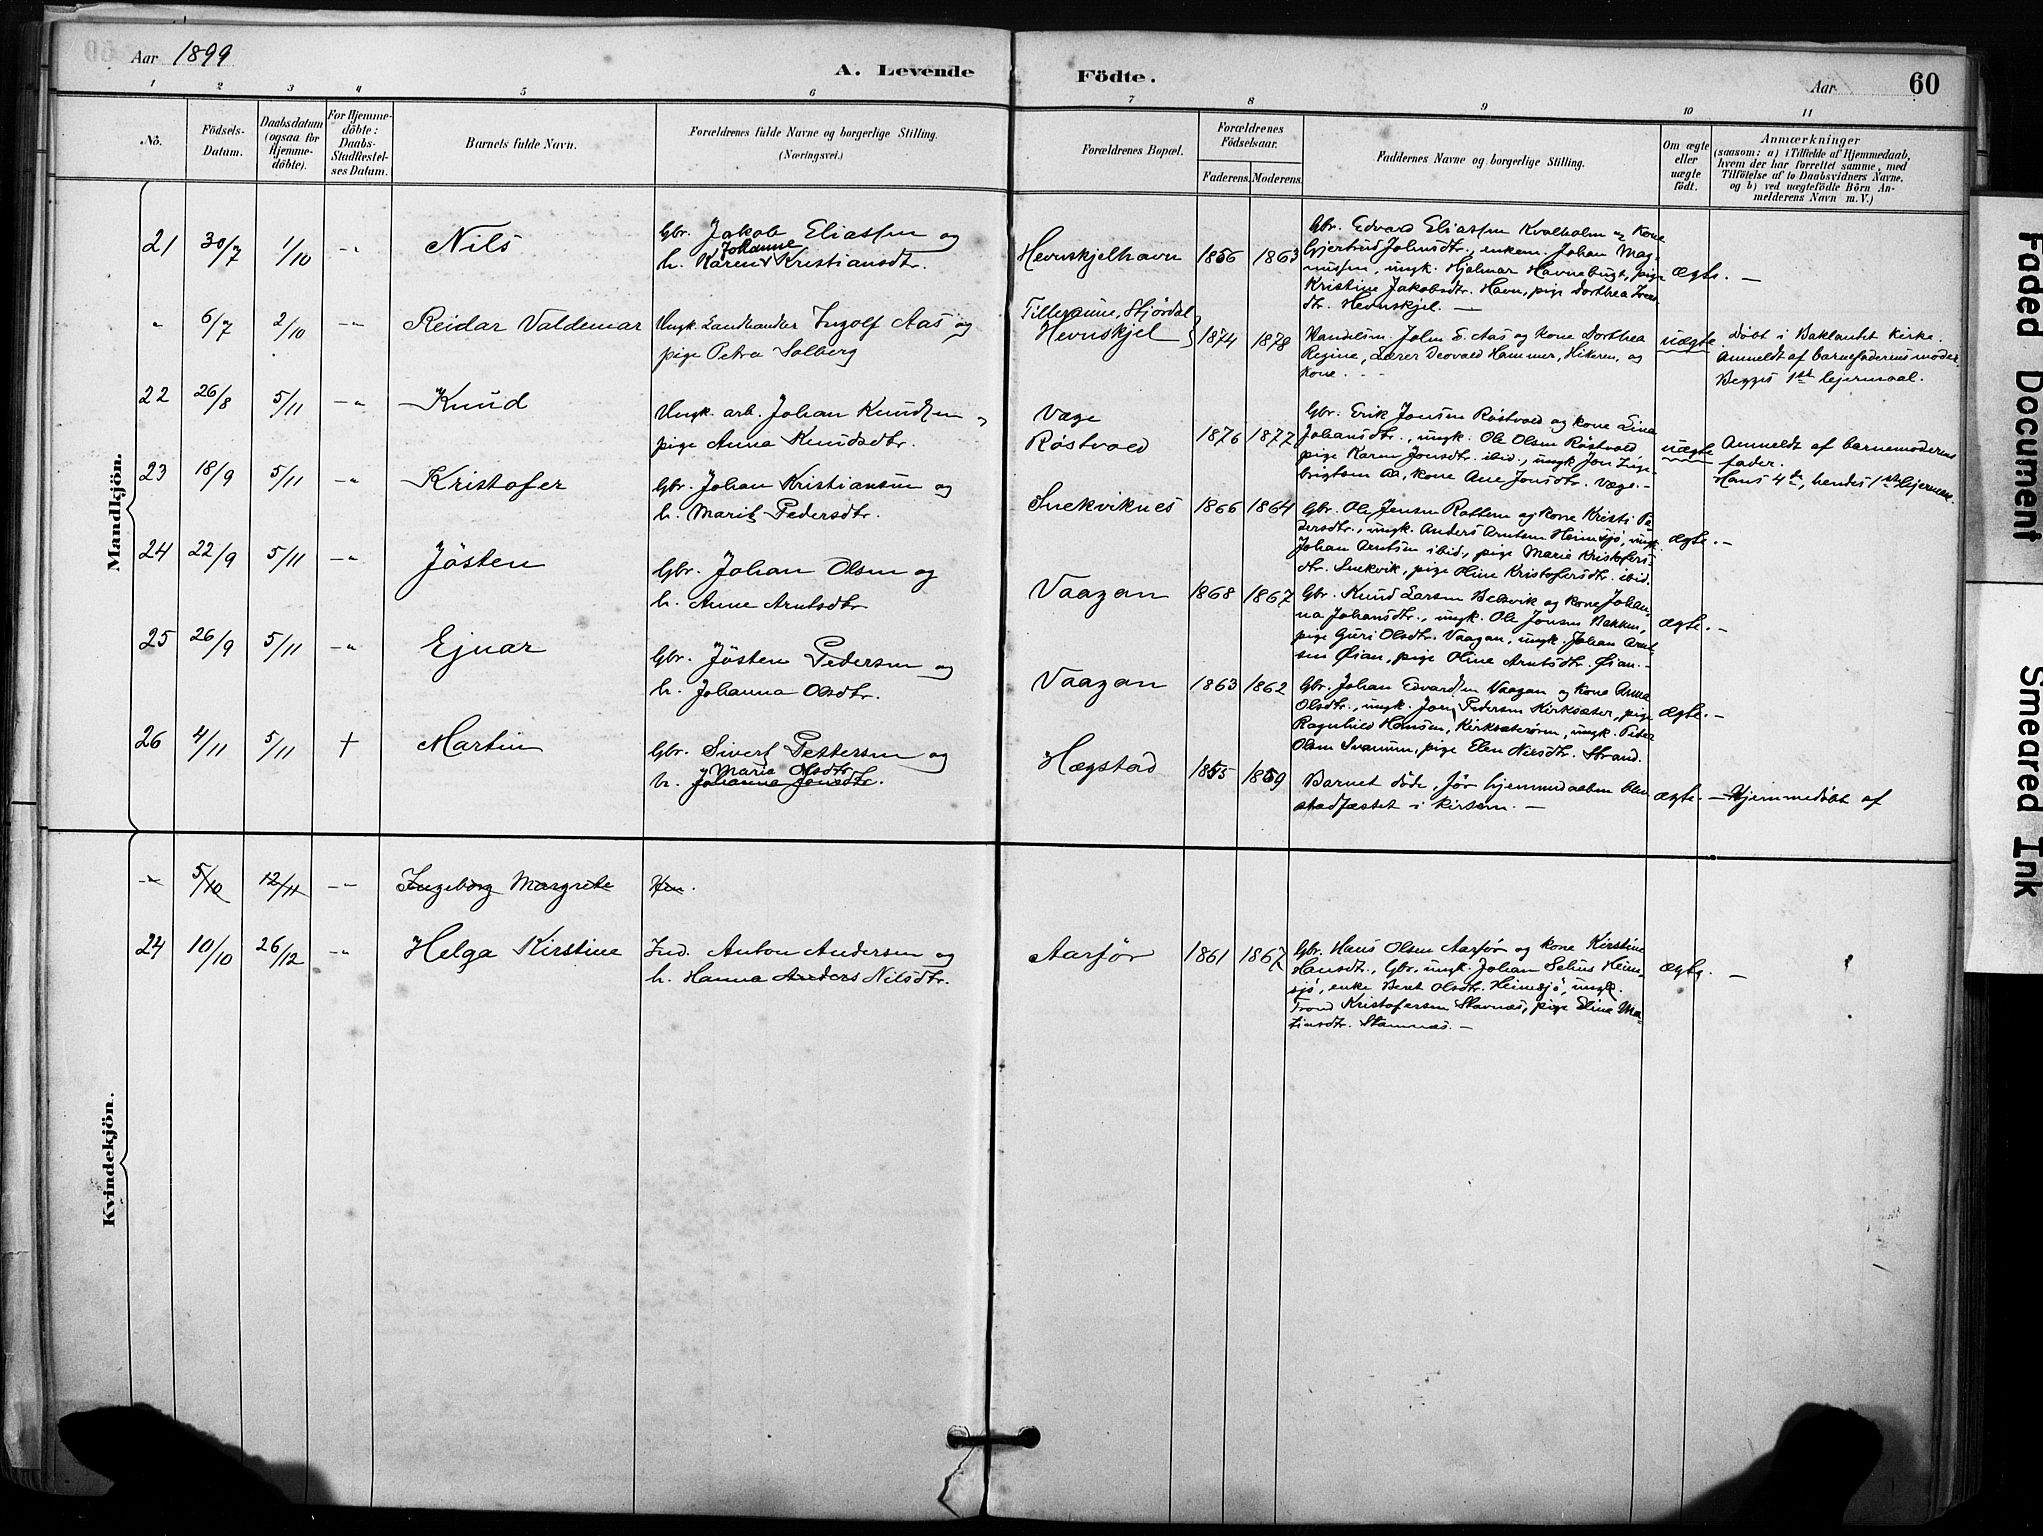 Aar 1899
A. Levende Födte.
Aar 60
1 2 3 4 5 6 7 8 9 10 11
No.
Födsels-
Datum.
Daabsdatum
(ogsaa for
Hjemme-
döbte).
For Hjemme-
döbte:
Daabs-
Stadfæstel-
ses Datum.
Barnets fulde Navn.
Forældrenes fulde Navne og borgerlige Stilling.
(Næringsvei.)
Forældrenes Bopæl.
Forældrenes
Födselsaar.
Faderens. Moderens.
Faddernes Navne og borgerlige Stilling.
Om ægte
eller
uægte
födt.
Anmærkninger
(saasom: a) i Tilfælde af Hjemmedaab,
hvem der har forrettet samme, med
Tilföielse af to Daabsvidners Navne.
og b) ved uægtefödte Börn An-
melderens Navn m. V.)
Mandkjön.
21 30/7 1/10 -"- Nils
Gbr. Jakob Eliassen og
Johanne
h. Karen Kristiansdtr.
Hevnskjelhavn 1856 1863
Gbr. Edvard Eliassen Kvalholm og kone
Gjertrud Johnsdtr., enkem. Johan Mag-
nussen, ungk. Hjalmar Havnebugt, pige
Kristine Jakobsdtr. Havn, pige Dorthea
dtr. Hevnskjel. —
ægte. —
" 6/7 2/10 -"- Reidar Valdemar
Ungk. Landhandler Ingolf Aas og
pige Petra Solberg
Stjørdal
Hevnskjel } 1874 1878
Handelsm. John E. Aas og kone Dorthea
Regine, Lærer Hammer, Hiteren, og
kone.
uægte
Døbt i Baklandet Kirke.
Anmeldt af barnefaderens moder.
Begges 1ste lejermaal.
22 26/8 5/11 -"- Knud
Ungk. arb. Johan Knudsen
pige Anna Knudsdtr.
Væge
Røstvold 1876 1877
Gbr. Erik Jonsen Røstvold og kone Lina
Johansdtr., ungk. Ole Olsen Røstvold
pige Karen Jonsdtr. ibid., ungk. Jon Inge-
brigtsen Aa, kone Ane Jonsdtr. Væge.—
uægte
Anmeldt af barnemoderens
fader.
Hans 4de, hendes 1ste lejermaal.
23 18/9 5/11 -"- Kristofer
Gbr. Johan Kristiansen og
h. Marit Pedersdtr.
Snekviknes 1866 1864
Gbr. Ole Jensen Rottem og kone Kristi Pe-
dersdtr., ungk. Anders Arntsen Heimsjø, ungk.
Johan Arntsen ibid., pige Marie Kristofers-
dtr. Snekvik, pige Oline Kristofersdtr. ibid.
ægte. —
24 22/9 5/11 -"- Jøsten
Gbr. Johan Olsen og
h. Anne Arntsdtr.
Vaagan 1868 1867
Gbr. Knud Larsen Belsvik og kone Johan-
na Johansdtr., ungk. Ole Jonsen Bakken,
pige Guri Olsdtr. Vaagan, ungk. Johan Arnt-
sen Øian, pige Oline Arntsdtr. Øian. —
ægte. —
25 26/9 5/11 -"- Ejnar
Gbr. Jøsten Pedersen og
h. Johanna Olsdtr.
Vaagan 1863 1862
Gbr. Johan Edvardsen Vaagan og kone Anna
Olsdtr., ungk. Jon Pedersen Kirksæter, pige
Ragnhild Hansen, Kirksæterøren, ungk. Peder
Olsen Svanem, pige Elen Nilsdtr. Strand.
ægte. —
26 4/11 5/11 + Martin
Gbr. Sivert Pettersen og
Marie Olsdtr.
h. Johanna Jonsdtr.
Hægstad 1855 1859
Barnet døde, før hjemmedaaben blev
stadfæstet i kirken. —
ægte. — Hjemmedøbt af
Kvindekjön.
-"- 5/10 12/11 -"- Ingeborg Margrete
24 10/10 26/12 -"- Helga Kirstine
Ind. Anton Andersen og
h. Hanna Anders Nilsdtr.
Aarfør 1861 1867
Gbr. Hans Olsen Aarfør og kone Kirstine
Hansdtr., Gbr. ungk. Johan Selius Heim-
sjø, enke Beret Olsdtr. Heimsjø, ungk.
Trond Kristofersen Stavnæs, pige Elina Mar-
tinsdtr. Stamnæs. —
ægte. —
Faded Document
Smeared Ink